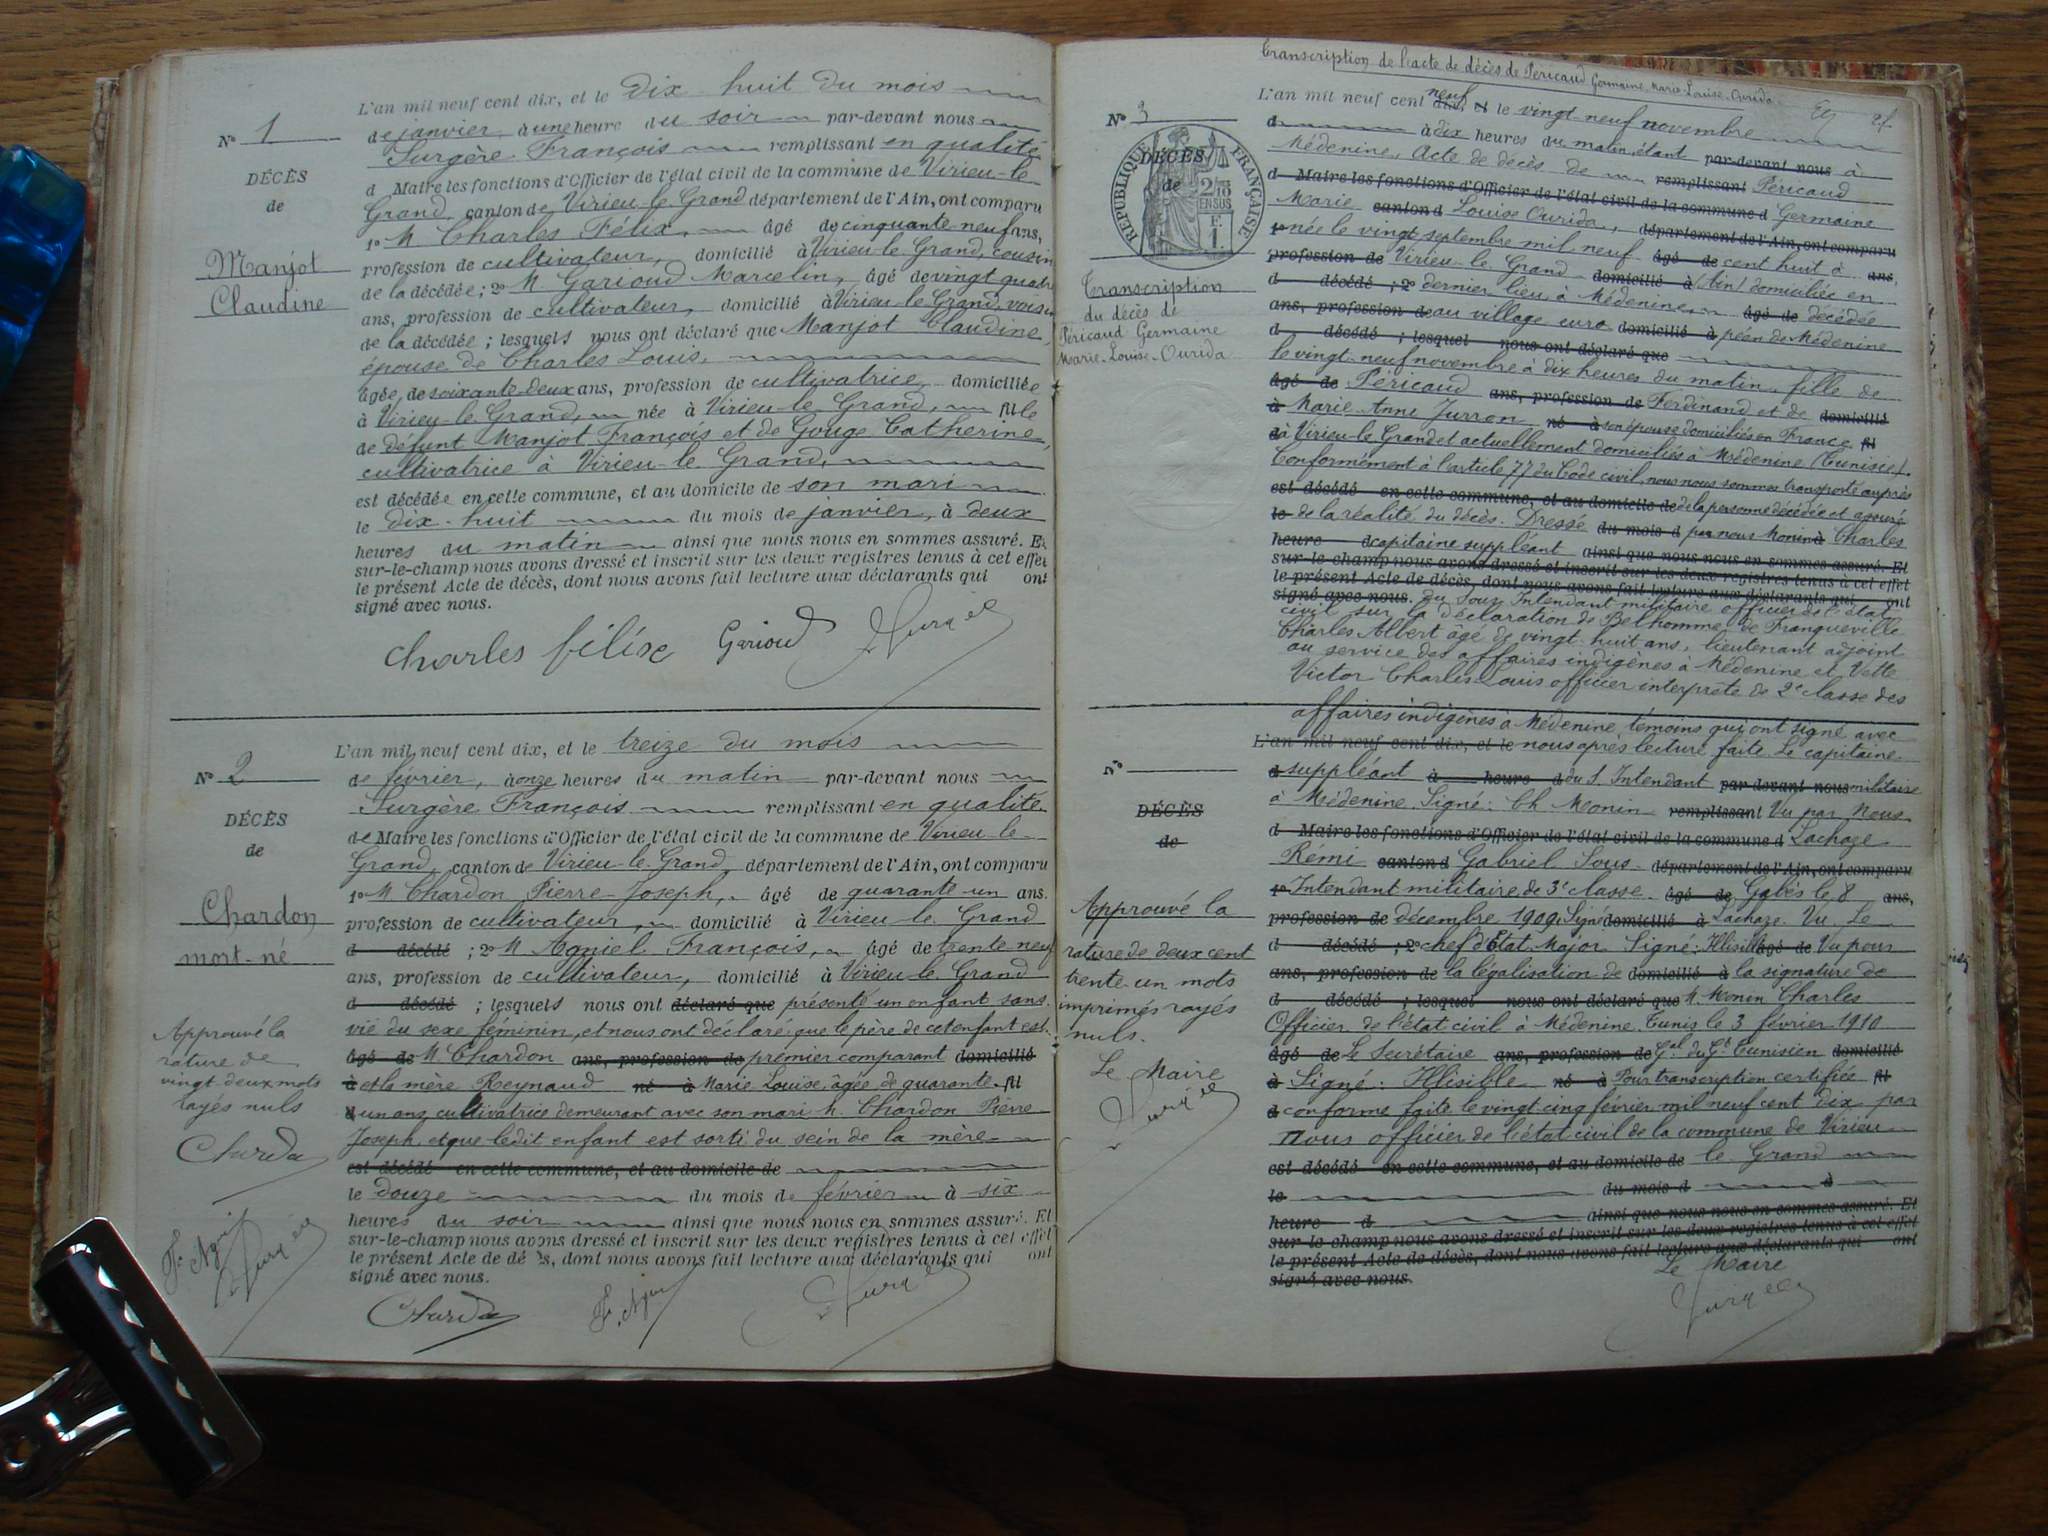 L'an mil neuf cent dix, et le dix-huit du mois
N° 1
de janvier, à une heure du soir par-devant nous
Surgère François remplissant en qualité
DÉCÈS
de
d Maire les fonctions d'Officier de l'état civil de la commune de Virieu-le-
Grand, canton de Virieu-le-Grand département de l'Ain, ont comparu
1° M Charles Félix, âgé de cinquante neuf ans,
Manjot
Claudine
profession de cultivateur, domicilié à Virieu-le-Grand, cousin
de la décédée ; 2° M Garioud Marcelin, âgé de vingt quatre
ans, profession de cultivateur, domicilié à Virieu-le-Grand, voisin
de la décédée ; lesquels nous ont déclaré que Manjot Claudine,
épouse de Charles Louis,
âgée de soixante-deux ans, profession de cultivatrice, domiciliée
à Virieu-le-Grand, née à Virieu-le-Grand, fille
de défunt Manjot François et de Gouge Catherine,
cultivatrice à Virieu-le-Grand,
est décédée en cette commune, et au domicile de son mari
le dix-huit du mois de janvier, à deux
heures du matin ainsi que nous nous en sommes assuré. Et
sur-le-champ nous avons dressé et inscrit sur les deux registres tenus à cet effet
le présent Acte de décès, dont nous avons fait lecture aux déclarants qui ont
signé avec nous.
Charles félix Garioud
L'an mil neuf cent dix, et le treize du mois
N° 2
de février, à onze heures du matin par-devant nous
Surgère François remplissant en qualité
DÉCÈS
de
de Maire les fonctions d'Officier de l'état civil de la commune de Virieu-le-
Grand, canton de Virieu-le-Grand, département de l'Ain, ont comparu
1° M Chardon Pierre-Joseph, âgé de quarante-un ans.
Chardon
mort-né
profession de cultivateur, domicilié à Virieu-le-Grand
d décédé ; 2° M Agniel François, âgé de trente-neuf
ans, profession de cultivateur, domicilié à Virieu-le-Grand
d décédé ; lesquels nous ont déclaré que présenté un enfant sans
vie du sexe féminin, et nous ont déclaré que le père de cet enfant est
âgé de M. Chardon ans, profession de premier comparant domicilié
à et la mère Reynaud né à Marie Louise, âgée de quarante fil
d un ans, cultivatrice demeurant avec son mari M. Chardon Pierre
Joseph, et que ledit enfant est sorti du sein de la mère
est décédé en cette commune, et au domicile de
le douze du mois de février à six
heures du soir ainsi que nous nous en sommes assuré. Et
sur-le-champ nous avons dressé et inscrit sur les deux registres tenus à cet effet
le présent Acte de décès, dont nous avons fait lecture aux déclarants qui ont
signé avec nous.
Approuvé la
rature de
vingt-deux mots
rayés nuls
Transcription de l'acte de décès de Péricaud Germaine-Marie-Louise-Ourida
N° 3
L'an mil neuf cent dix, et neuf le vingt-neuf novembre
d à dix heures du matin, étant par-devant nous à
Médenine, Acte de décès de remplissant Péricaud
d Maire les fonctions d'Officier de l'état civil de la commune d Germaine
Marie canton d Louise Ourida, département de l'Ain, ont comparu
1° née le vingt septembre mil neuf âgé de cent huit à ans,
profession de Virieu-le-Grand domicilié à (Ain) domiciliée en
d décédé ; 2° dernier lieu, à Médenine, âgé de décédée
ans, profession de au village euro domicilié à péen de Médenine
d décédé ; lesquel nous ont déclaré que
le vingt-neuf novembre à dix heures du matin, fille de
âgé de Péricaud ans, profession de Ferdinand et de domicilié
à Marie-Anne Jurron né à son épouse domiciliés en France fil
d à Virieu-le-Grand et actuellement domiciliés à Médenine (Tunisie).
Conformément à l'article 77 du Code civil, nous nous sommes transporté auprès
est décédé en cette commune, et au domicile de de la personne décédée et assuré
le de la réalité du décès. Dressé du mois d par nous Monin à Charles
heure d capitaine suppléant ainsi que nous nous en sommes assuré. Et
sur-le-champ nous avons dressé et inscrit sur les deux registres tenus à cet effet
le présent Acte de décès, dont nous avons fait lecture aux déclarants qui ont
signé avec nous. du Sous-Intendant militaire officier de l'état
civil sur la déclaration de Belhomme de Franqueville
Charles Albert âgé de vingt-huit ans, lieutenant adjoint
au service des affaires indigènes à Médenine et Vette
Victor Charles-Louis officier interprète de 2e classe des
affaires indigènes à Médenine, témoins qui ont signé avec
L'an mil neuf cent dix, et le nous après lecture faite. Le capitaine
d suppléant à heure d du S. Intendant par-devant nous militaire
à Médenine. Signé : Ch. Monin remplissant Vu par Nous
d Maire les fonctions d'Officier de l'état civil de la commune d Lachaze
Rémi canton d Gabriel Sous- département de l'Ain, ont comparu
1° Intendant militaire de 3e classe. âgé de Gabès le 8 ans,
profession de décembre 1909. Signé domicilié à Lachaze. Vu Le
d décédé ; 2° chef d'État Major Signé : Illisible âgé de Vu pour
ans, profession de la légalisation de domicilié à la signature de
d décédé ; lesquel nous ont déclaré que M. Monin Charles
Officier de l'état civil à Médenine. Tunis le 3 février 1910
âgé de Le Secrétaire ans, profession de Gal du Gt Tunisien domicilié
à Signé : Illisible né à Pour transcription certifiée fil
d conforme faite le vingt cinq février mil neuf cent dix par
Nous officier de l'état civil de la commune de Virieu
est décédé en cette commune, et au domicile de le Grand
le du mois d à
heure d ainsi que nous nous en sommes assuré. Et
sur-le-champ nous avons dressé et inscrit sur les deux registres tenus à cet effet
le présent Acte de décès, dont nous avons fait lecture aux déclarants qui ont
signé avec nous.
Le Maire
DÉCÈS
de
RÉPUBLIQUE FRANÇAISE
2/10
EN SUS
Transcription
du décès de
Péricaud Germaine
Marie-Louise-Ourida
N°
DÉCÈS
de
Approuvé la
rature de deux cent
trente un mots
imprimés rayés
nuls.
Le Maire